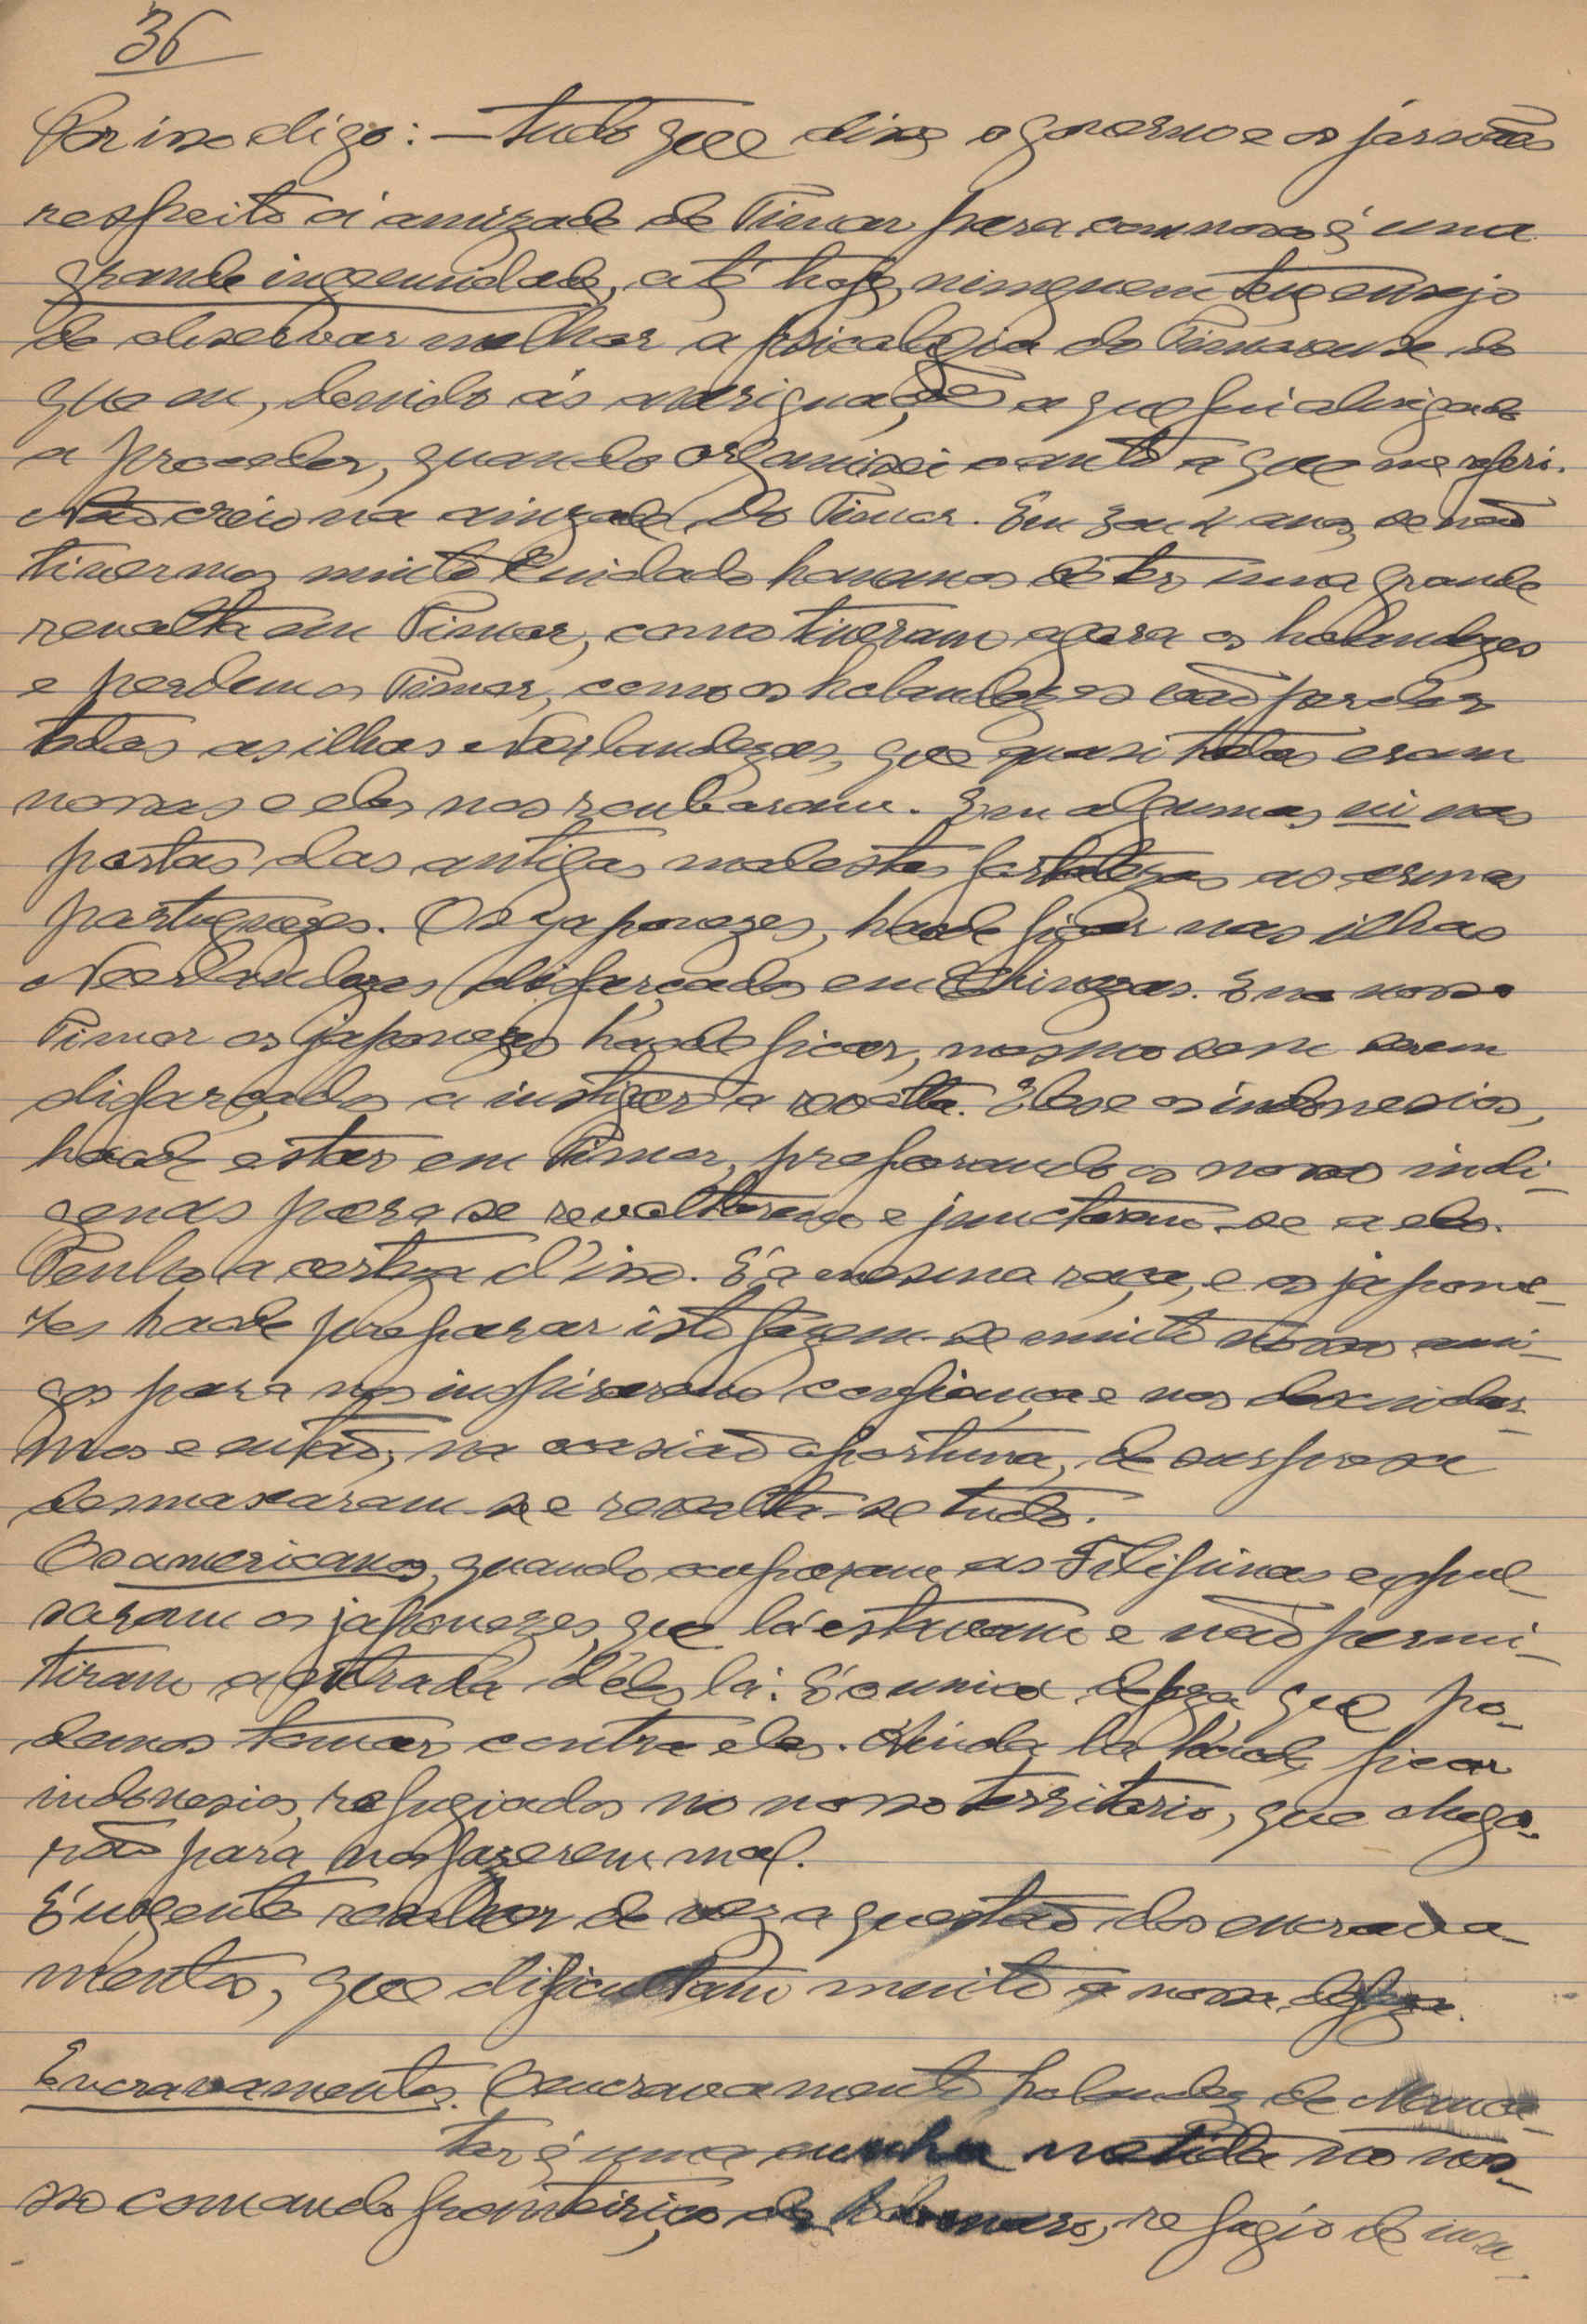 36
Por isso digo: — tudo que disse o governo e os jornaes
respeito á amizade de Timor para comnosco é uma
grande ingenuidade, até hoje, ninguem teve ensejo
de observar melhor a psicologia do Timorense do
que eu, devido ás averiguações a que fui obrigado
a proceder, quando organisei o auto a que me referi.
Não creio na amizade do Timor. Em 3 ou 4 anos, se não
tivermos muito cuidado havemos de ter uma grande
revolta em Timor, como tiveram agora os holandezes
e perdemos Timor, como os holandezes vão perder
todas as ilhas Neerlandezas, que quasi todas eram
nossas e eles nos roubaram. Em algumas vi nas
portas das antigas modestas fortalezas as armas
portuguezes. Os japonezes, hade ficar nas ilhas
Neerlandezas disfarçados em Chinezes. E no nosso
Timor os japonezes hãode ficar, mesmo sem serem
disfarçados a instigar a revolta. Eles e os indonesios,
hãode estar em Timor, preparando os nossos indi-
genas para se revoltarem e junctarem-se a eles.
Tenho a certeza d'isso. É a mesma raça, e os japone-
zes hade preparar isto fazem-se muito nossos ami-
gos para nos inspirarem confiança e nos descuidar-
mos e então, na ocasião oportuna, de surpresa
desmascaram-se e revolta-se tudo.
Os americanos, quando ocuparam as Filipinas expul-
saram os japonezes, que lá estavam e não permi-
tiram a entrada d'eles lá. É o unica defeza que po-
demos tomar contra eles. Ainda lá hãode ficar
indonesios, refugiados no nosso territorio, que chega-
rão para nos fazerem mal.
É urgente resolver de vez a questão dos encrava-
mentos, que dificultam muito a nossa defeza.
Encravamentos. O encravamento holandez de Mauca-
tar é uma cunha metida no nos-
so comando fronteiriço de Bobonaro, refugio de